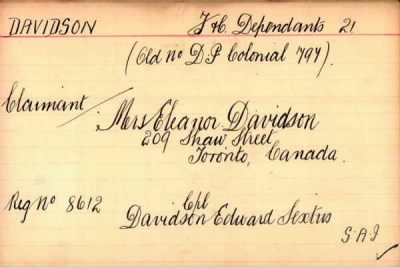 DAVIDSON F & C. Dependants 21
(Old No D.P. Colonial 797).
Claimant / Mrs Eleanor Davidson
209 Shaw Street
Toronto, Canada.
Reg No 8612 Cpl
Davidson Edward Sextus
S.A.I
✓